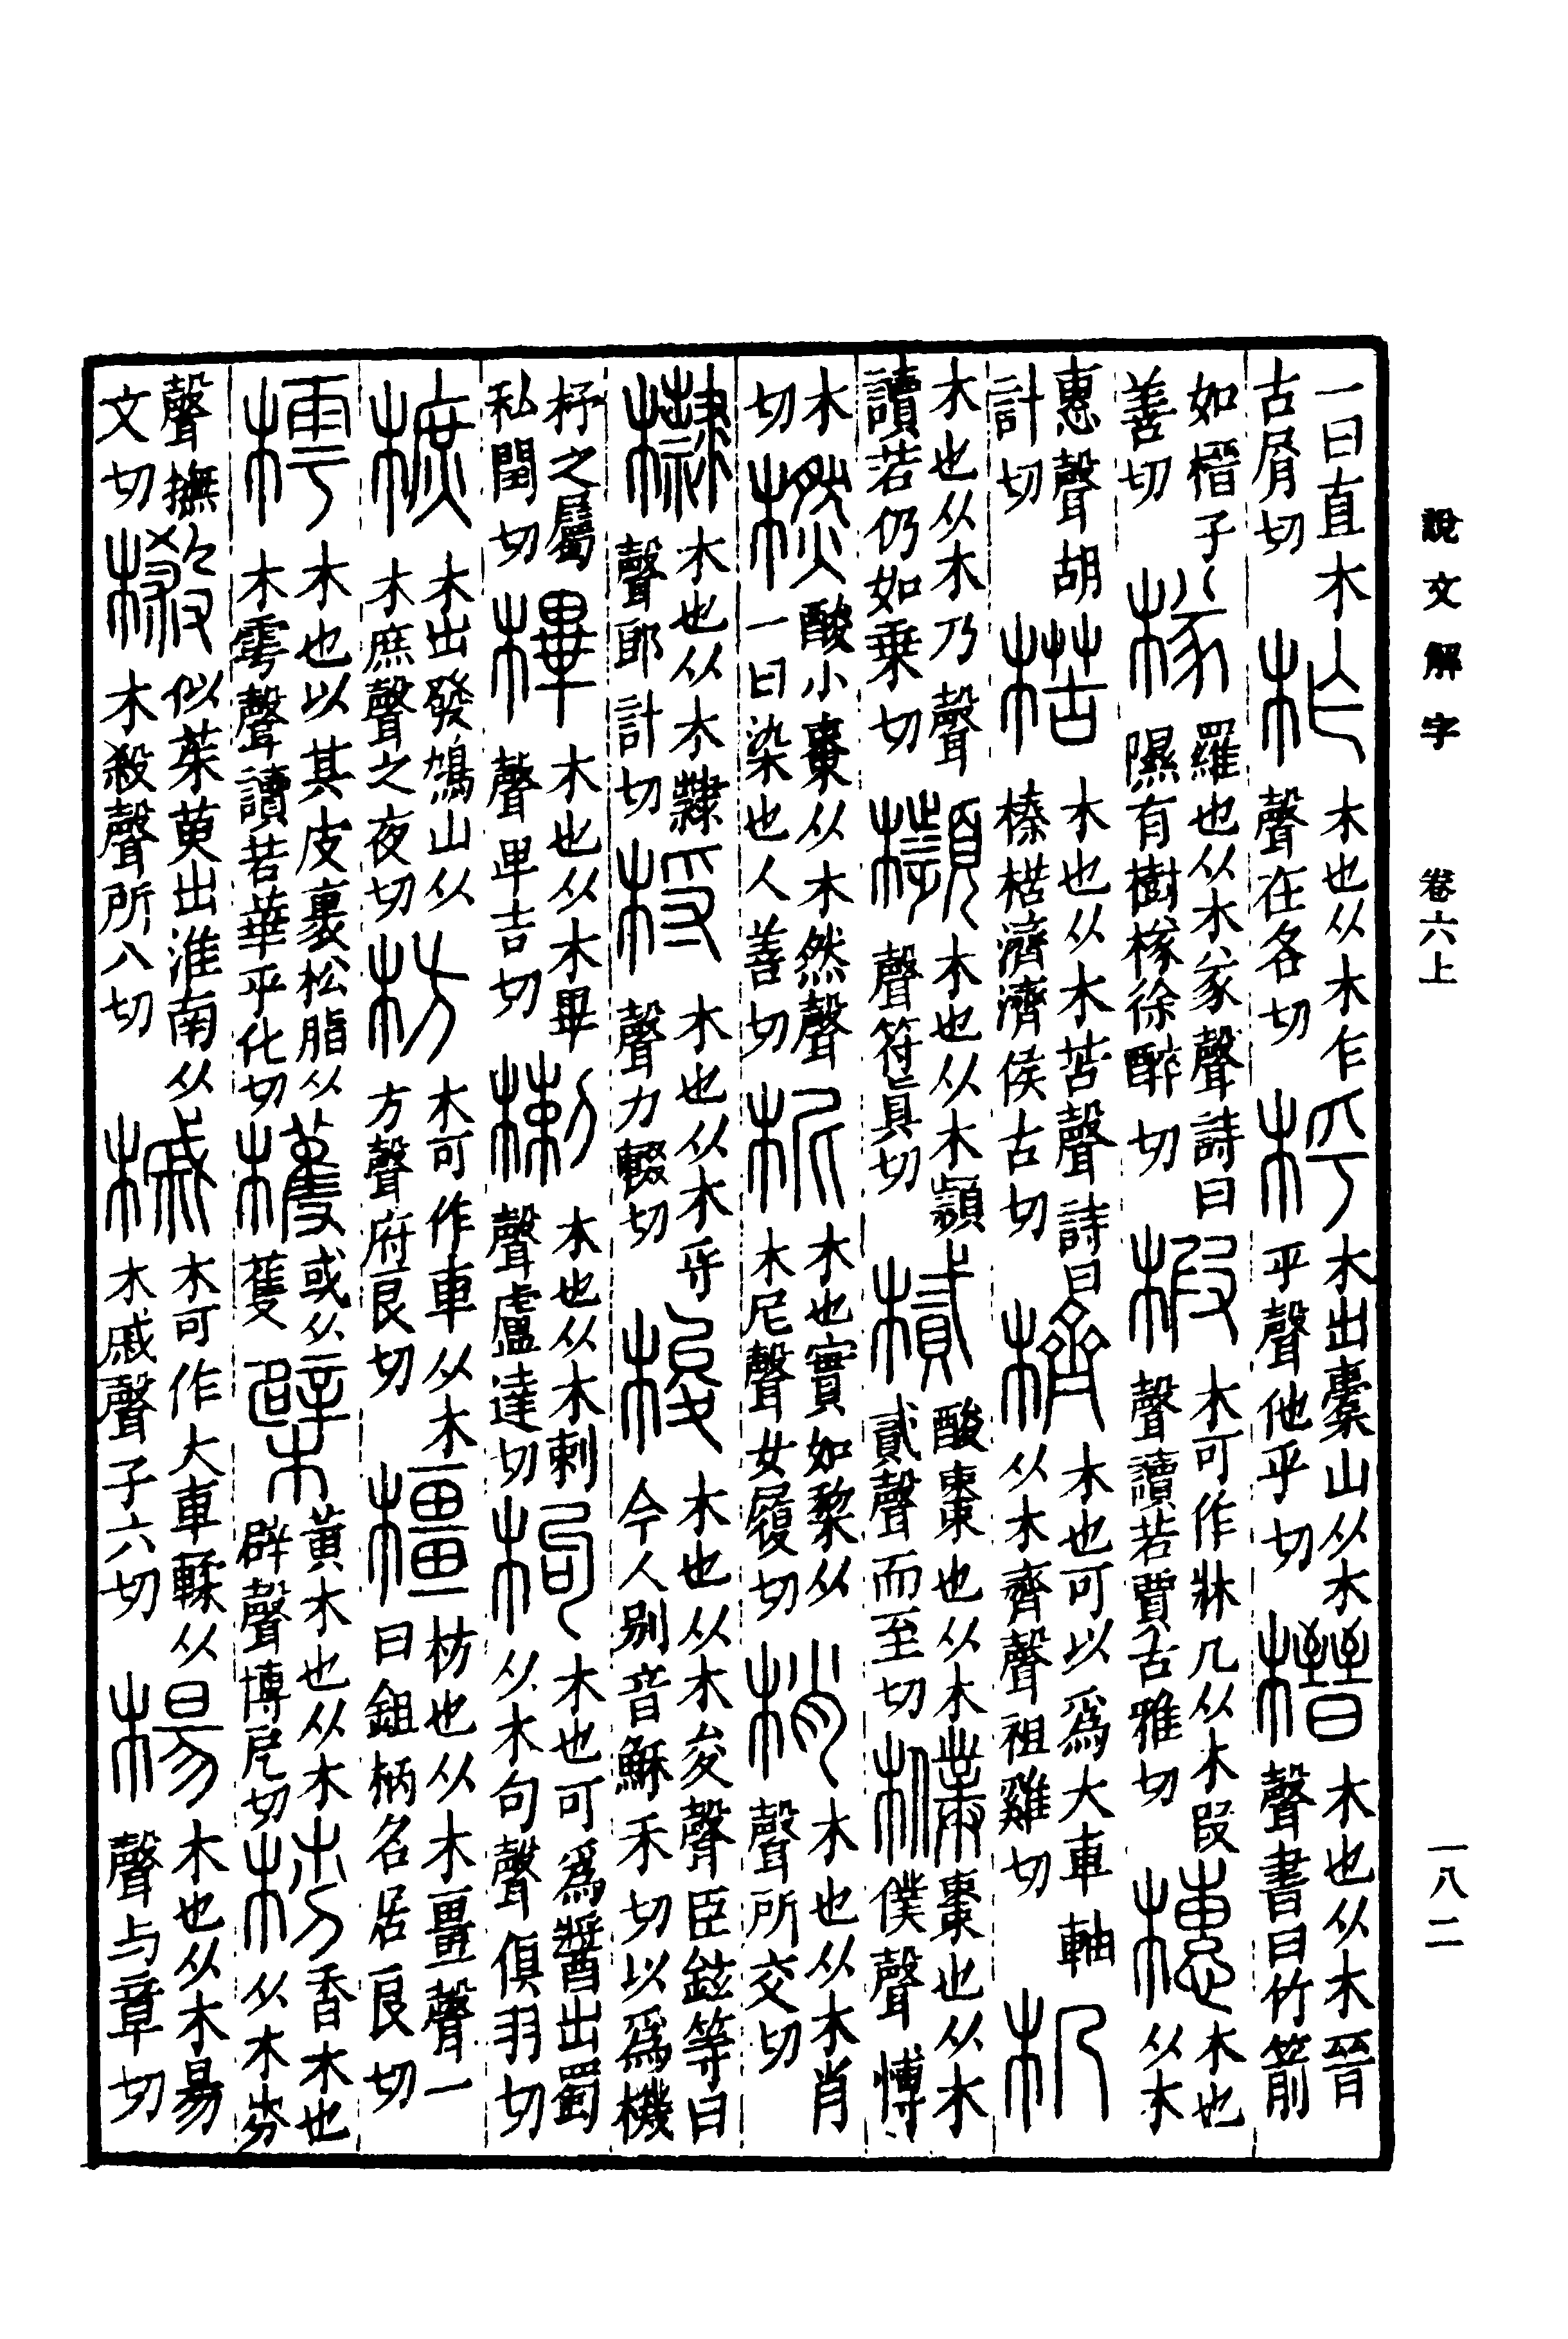 一曰直木古屑切 柞 木也从木乍聲在各切 㭔 木出橐山从木乎聲他乎切 榗 木也从木晉聲書曰竹箭
如榗子善切 檖 羅也从木㒸聲詩曰隰有樹檖徐醉切 椵 木可作牀几从木叚聲讀若賈古雅切 橞 木也从木
惠聲胡計切 楛 木也从木苦聲詩曰榛楛濟濟侯古切 櫅 木也可以爲大車軸从木齊聲祖雞切 㭁
木也从木乃聲讀若仍如乗切 櫇 木也从木頻聲符眞切 樲 酸棗也从木貳聲而至切 㯷 棗也从木僕聲博
木切 橪 酸小棗从木然聲一曰染也人善切 柅 木也實如棃从木尼聲女履切 梢 木也从木肖聲所交切
㯤 木也从木隸聲郎計切 㭩 木也从木寽聲力輟切 梭 木也从木夋聲臣鉉等曰今人别音穌禾切以爲機
杼之屬私閏切 㮿 木也从木畢聲卑吉切 楋 木也从木剌聲盧達切 枸 木也可爲醬出蜀从木句聲俱羽切
樜 木出發鳩山从木庶聲之夜切 枋 木可作車从木方聲府良切 橿 枋也从木畺聲一曰鉏柄名居良切
樗 木也以其皮裹松脂从木雩聲讀若華乎化切 檴 或从蒦 檗 黄木也从木辟聲博戹切 梤 香木也从木岎
聲撫文切 榝 似茱萸出淮南从木殺聲所八切 槭 木可作大車輮从木戚聲子六切 楊 木也从木昜聲与章切
說文解字 卷六上 一八二